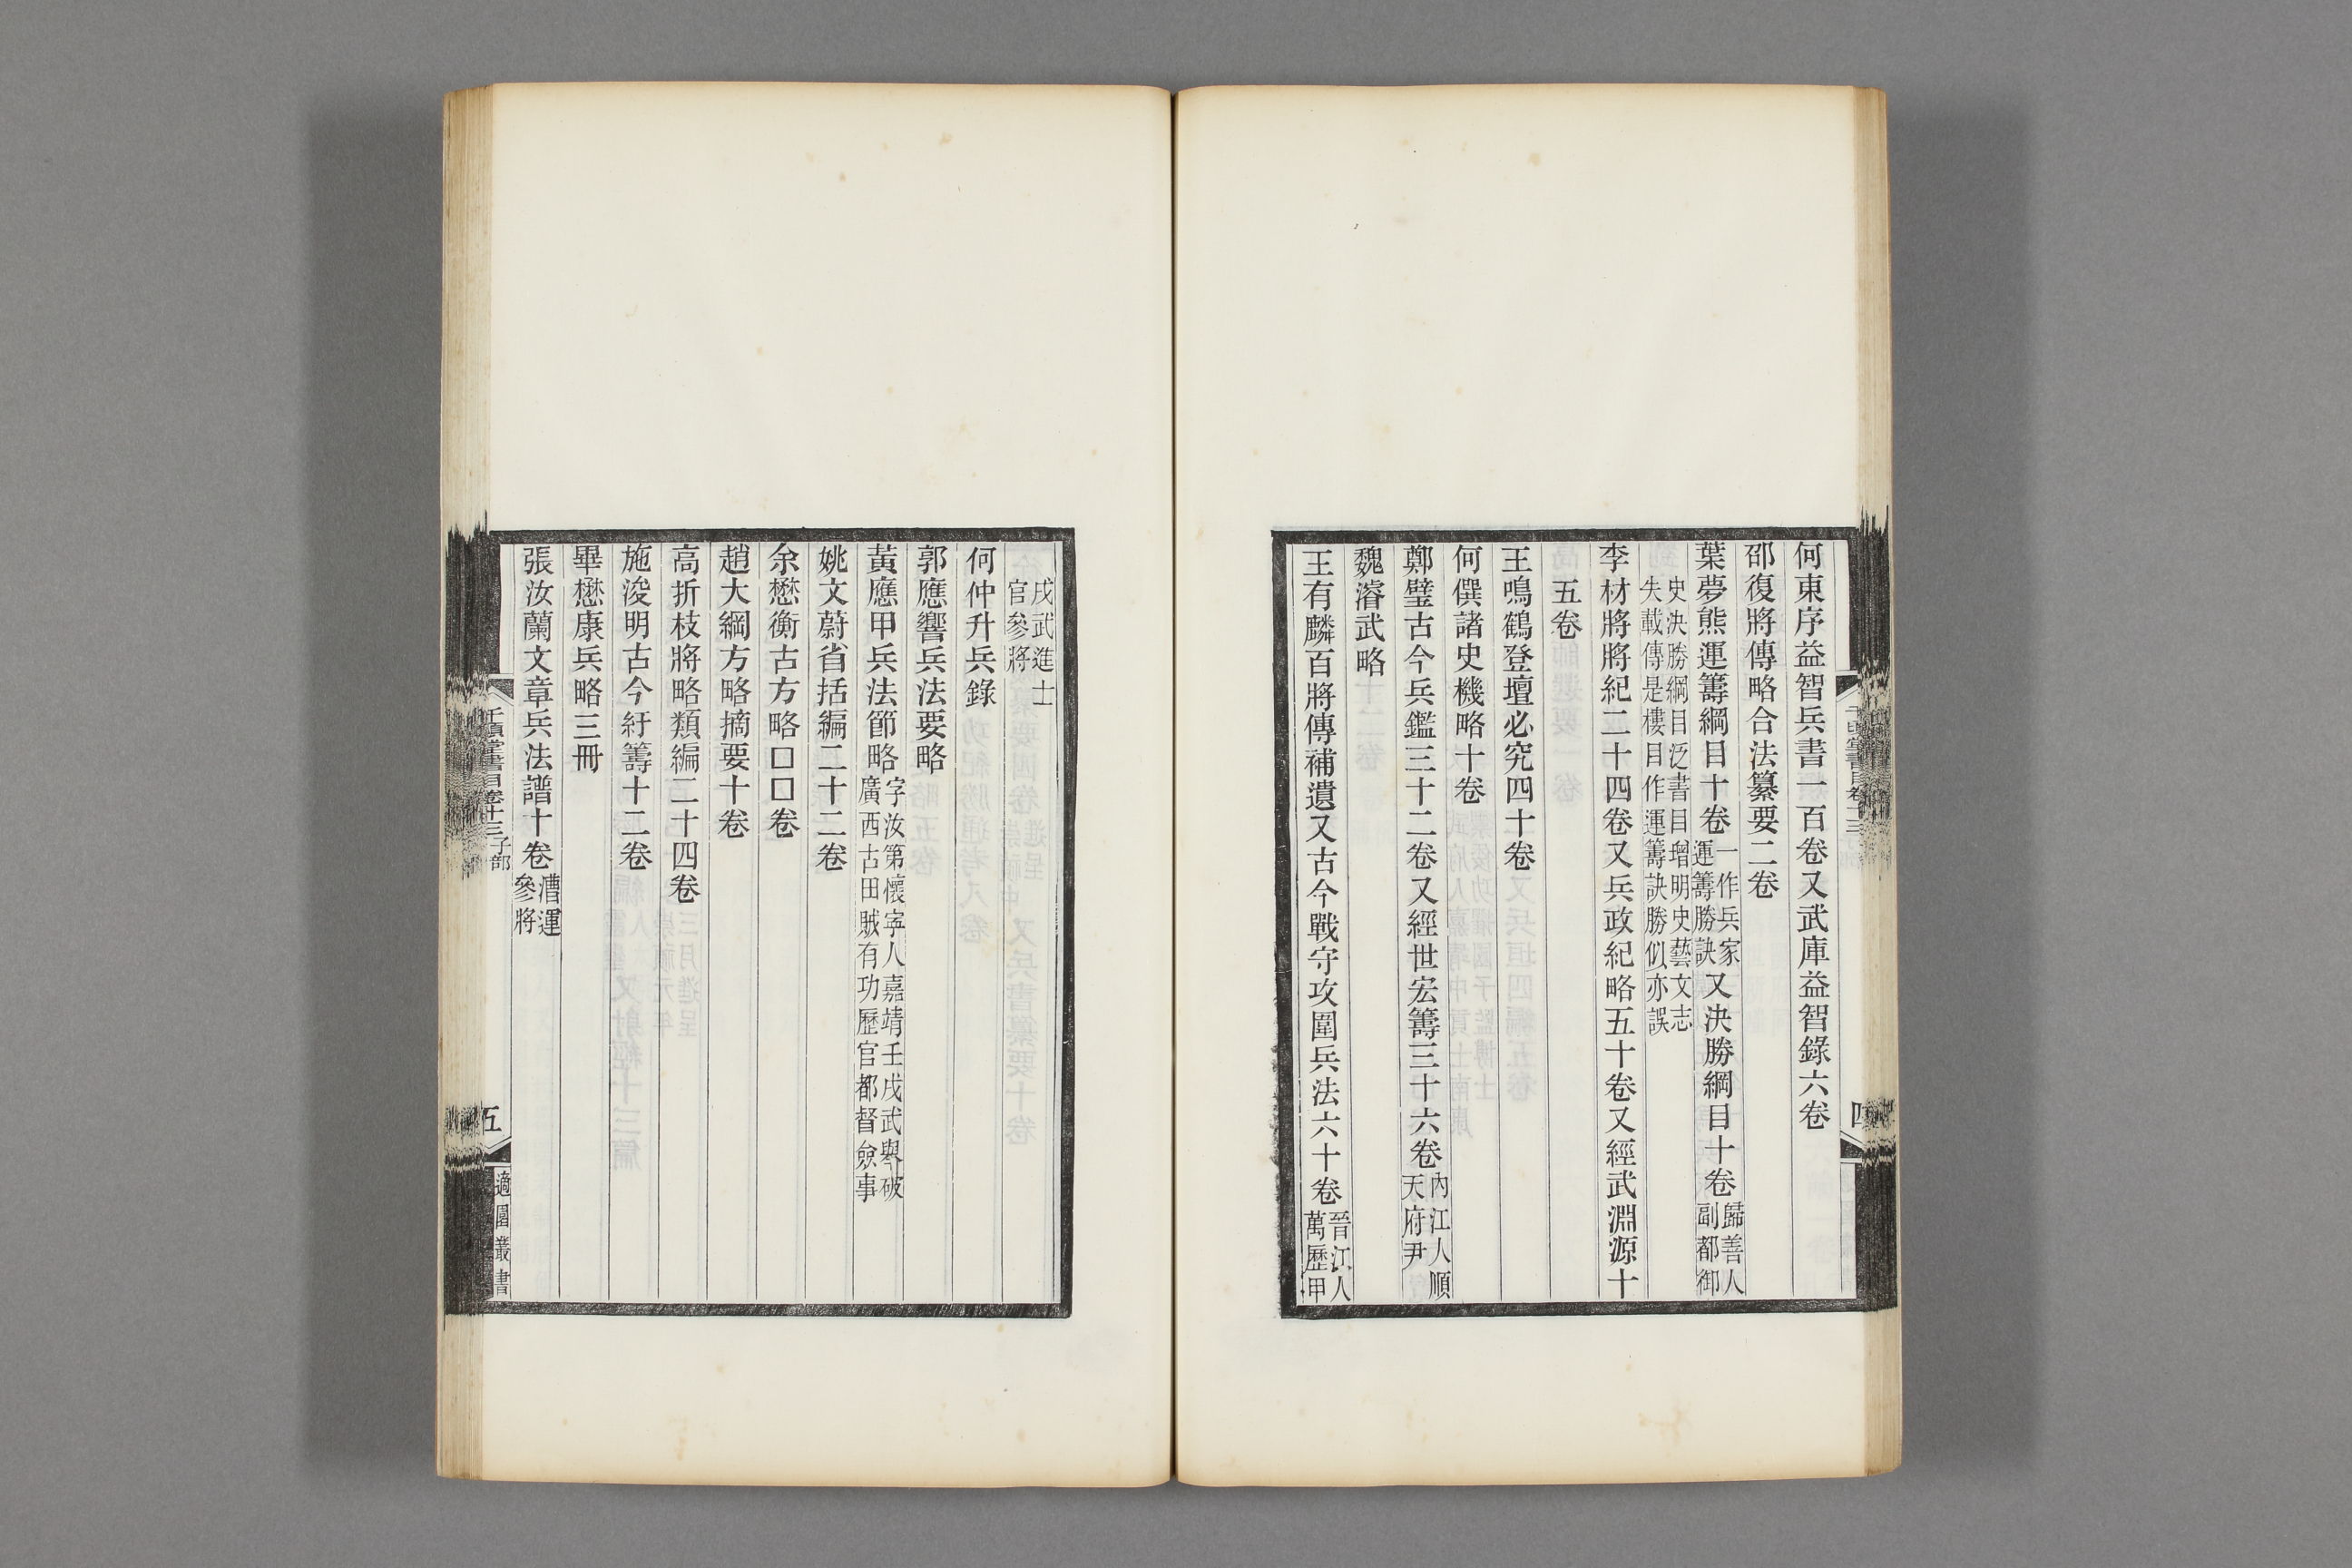 何東序益智兵書一百卷又武庫益智錄六卷
邵復將傳略合法纂要二卷
葉夢熊運籌綱目十卷一作兵家運籌勝訣又決勝綱目十卷歸善人副都御
史決勝綱目泛書目增明史藝文志
失載傳是樓目作運籌訣勝似亦誤
李材將將紀二十四卷又兵政紀略五十卷又經武淵源十
五卷
王鳴鶴登壇必究四十卷
何僎諸史機略十卷
鄭璧古今兵鑑三十二卷又經世宏籌三十六卷內江人順天府尹
魏濬武略
王有麟百將傳補遺又古今戰守攻圍兵法六十卷晉江人萬歷甲
四
戌武進士
官參將
何仲升兵錄
郭應響兵法要略
黃應甲兵法節略字汝第懷寧人嘉靖壬戌武舉破廣西古田賊有功歷官都督僉事
姚文蔚省括編二十二卷
余懋衡古方略□□卷
趙大綱方略摘要十卷
高折枝將略類編二十四卷
施浚明古今紆籌十二卷
畢懋康兵略三冊
張汝蘭文章兵法譜十卷漕運參將
千頃堂書目卷十三子部
五
適園叢書